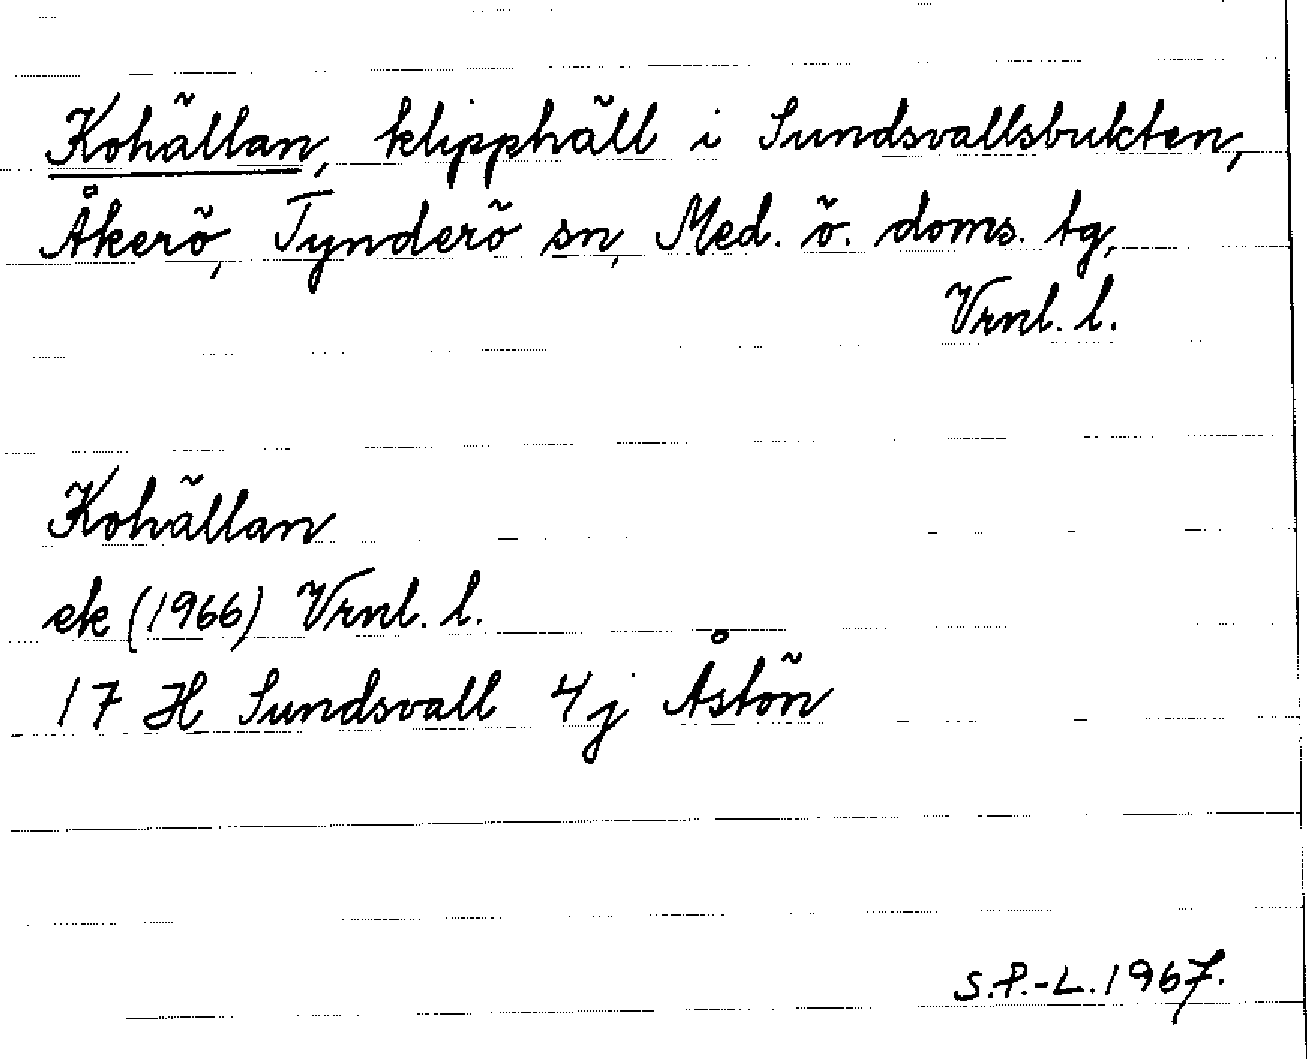 Kohällan, klipphäll i Sundsvallsbukten,
Åkerö, Tynderö sn, Med. ö. doms. tg,
Vrnl. l.
Kohällan
ek (1966) Vrnl. l.
17 H Sundsvall 4j Åstön
S.P.-L. 1967.